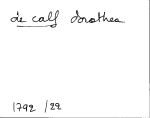 de calf dorothea
1792 / 22